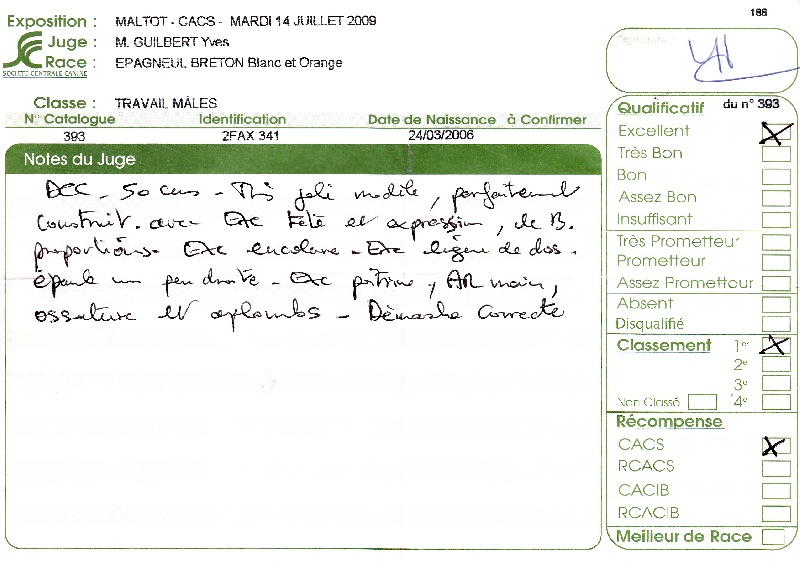 188
Exposition : MALTOT - CACS - MARDI 14 JUILLET 2009
Juge : M. GUILBERT Yves
Race : EPAGNEUL BRETON Blanc et Orange
SOCIÉTÉ CENTRALE CANINE
Classe : TRAVAIL MÂLES
N° Catalogue Identification Date de Naissance à Confirmer
393 2FAX 341 24/03/2006
Notes du Juge
DCC - 50 cms - Très joli modèle, parfaitement
construit. avec Exc tête et expression, de B.
proportions. Exc encolure - Exc ligne de dos.
épaule un peu droite - Exc poitrine, AR main,
ossature et aplombs - Démarche correcte
Signature
Qualificatif du n° 393
Excellent X
Très Bon
Bon
Assez Bon
Insuffisant
Très Prometteur
Prometteur
Assez Prometteur
Absent
Disqualifié
Classement 1er X
2e
3e
Non Classé 4e
Récompense
CACS X
RCACS
CACIB
RCACIB
Meilleur de Race